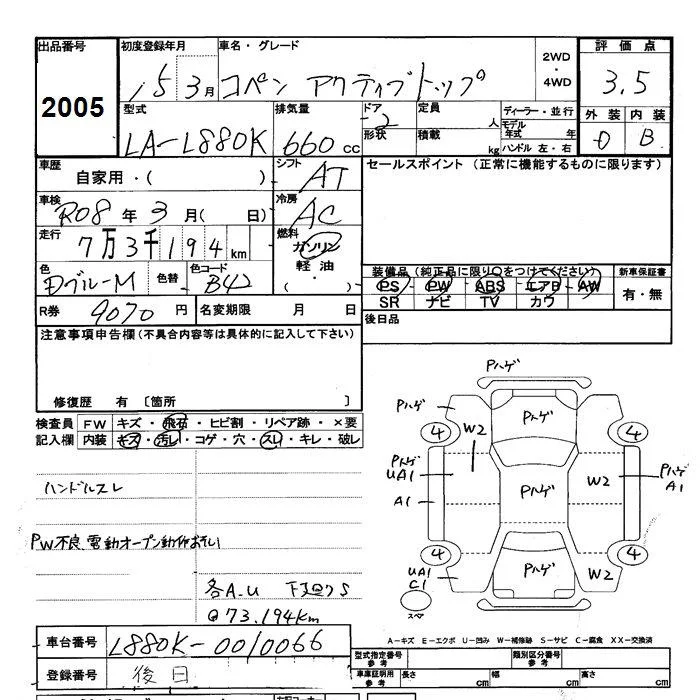 出品番号 初度登録年月 車名・グレード 2WD・4WD 評価点
2005 15 3月 コペン アクティブトップ 3.5
型式 排気量 ドア 定員 ディーラー・並行 外装 内装
LA-L880K 660cc -2 人 モデル年式 年 D B
形状 積載 kg ハンドル 左・右
車歴 シフト セールスポイント (正常に機能するものに限ります)
自家用・( ) AT
車検 冷房
R08年3月( 日) AC
走行 燃料
7万3千194km ガソリン
色 色替 色コード 軽油
Dブルー-M B42 ・( )
装備品(純正品に限り○をつけてください) 新車保証書
PS PW ABS エアB AW 有・無
SR ナビ TV カワ
R券 9070円 名変期限 月 日 後日品
注意事項申告欄(不具合内容等は具体的に記入して下さい)
修復歴 有 〔箇所 〕
検査員 FW キズ・飛石・ヒビ割・リペア跡・×要
記入欄 内装 キズ・汚レ・コゲ・穴・スレ・キレ・破レ
ハンドルスレ
PW不良、電動オープン動作おそい
各A.U 下廻りS
@73.194Km
Pハゲ
Pハゲ Pハゲ
4 W2 4
Pハゲ UA1 Pハゲ W2 Pハゲ A1
A1
4 4
UA1 C1 Pハゲ W2
スペア
A-キズ E-エクボ U-凹み W-補修跡 S-サビ C-腐食 XX-交換済
車台番号 L880K-0010066
登録番号 後日
型式指定番号 参考 類別区分番号 参考
車庫証明用 参考 長さ cm 幅 cm 高さ cm